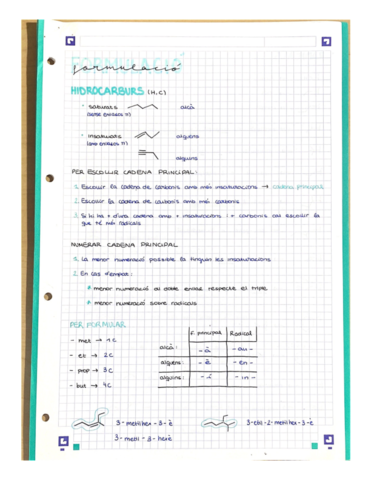 FORMULACIÓ
formulació
HIDROCARBURS (H, C)
- saturats alcà
(sense enllaços π)
- insaturats alquens
(amb enllaços π)
alquins
PER ESCOLLIR CADENA PRINCIPAL:
1. Escollir la cadena de carbonis amb més insaturacions → cadena principal
2. Escollir la cadena de carbonis amb més carbonis
3. Si hi ha + d'una cadena amb + insaturacions i + carbonis cal escollir la
que té més radicals
NUMERAR CADENA PRINCIPAL
1. La menor numeració possible la tinguin les insaturacions
2. En cas d'empat:
* menor numeració al doble enllaç respecte el triple
* menor numeració sobre radicals
PER FORMULAR
F. principal Radical
- met → 1C
alcà: - à - an -
- et → 2C
alquens: - è - en -
- pop → 3C
alquins: - í - in -
- but → 4C
3-metilhex-3-è
3-metil-3-hexè
3-etil-2-metilhex-3-è